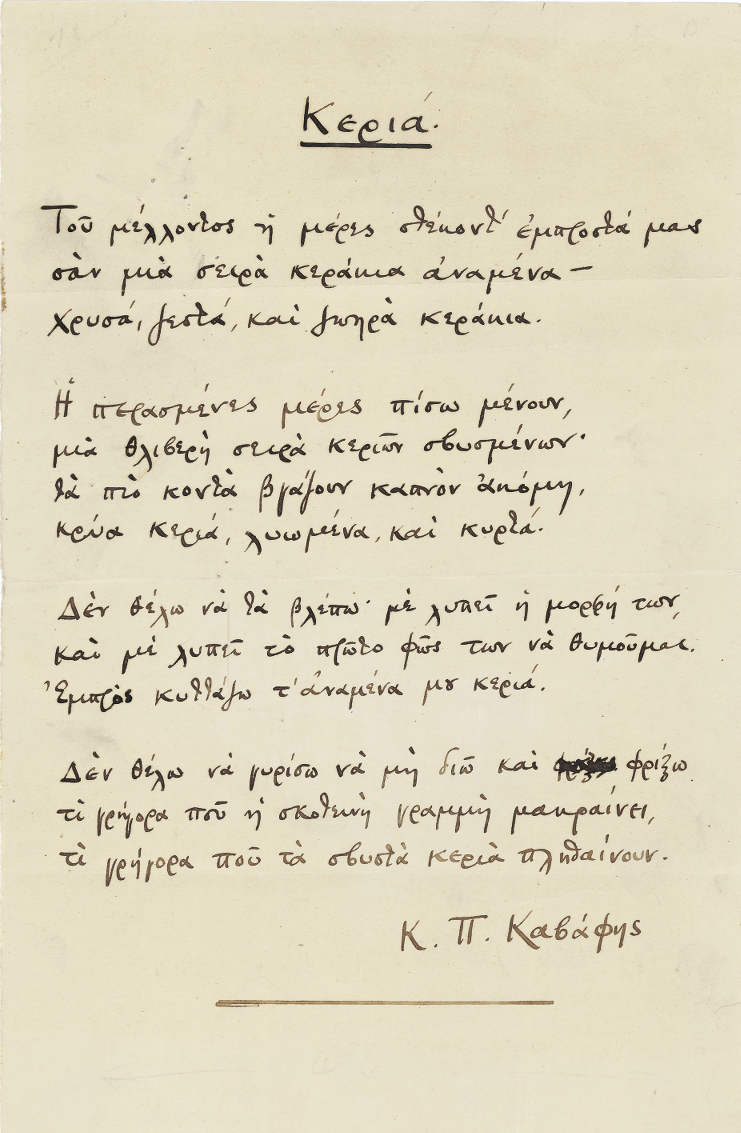 Κεριά.
Τοῦ μέλλοντος ἡ μέρες στέκοντ' ἐμπροστά μας
σὰν μιὰ σειρὰ κεράκια ἀναμένα —
χρυσά, ζεστά, καὶ ζωηρὰ κεράκια.
Ἡ περασμένες μέρες πίσω μένουν,
μιὰ θλιβερὴ σειρὰ κεριῶν σβυσμένων·
τὰ πιὸ κοντὰ βγάζουν καπνὸν ἀκόμη,
κρύα κεριά, λυωμένα, καὶ κυρτά.
Δὲν θέλω νὰ τὰ βλέπω· μὲ λυπεῖ ἡ μορφή των,
καὶ μὲ λυπεῖ τὸ πρῶτο φῶς των νὰ θυμοῦμαι.
Ἐμπρὸς κυττάζω τ' ἀναμένα μου κεριά.
Δὲν θέλω νὰ γυρίσω νὰ μὴ διῶ καὶ φρίξω
τί γρήγορα ποῦ ἡ σκοτεινὴ γραμμὴ μακραίνει,
τί γρήγορα ποῦ τὰ σβυστὰ κεριὰ πληθαίνουν.
Κ. Π. Καβάφης